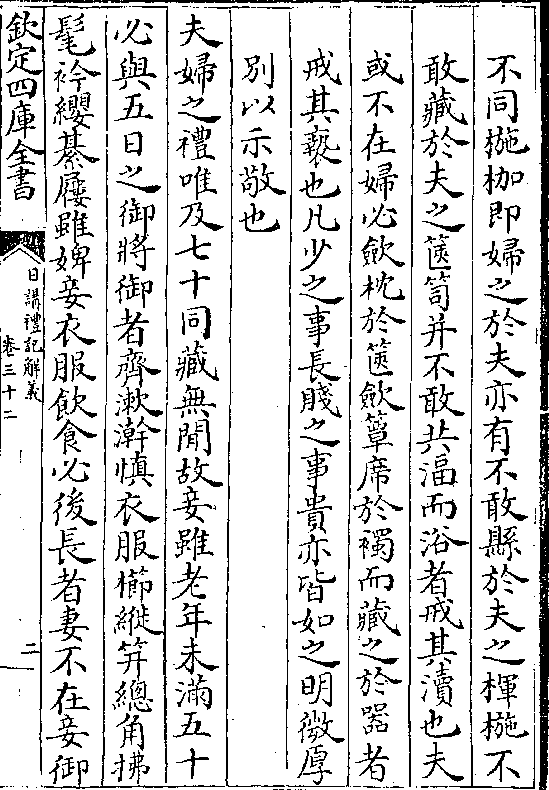 不同椸枷即婦之於夫亦有不敢縣於夫之楎椸不
敢藏於夫之篋笥并不敢共湢而浴者戒其瀆也夫
或不在婦必歛枕於篋歛簟席於襡而藏之於器者
戒其褻也凡少之事長賤之事貴亦皆如之明微厚
別以示敬也
夫婦之禮唯及七十同藏無間故妾雖老年未滿五十
必與五日之御將御者齊漱澣慎衣服櫛縰笄總角拂
髦衿纓綦屨雖婢妾衣服飲食必後長者妻不在妾御
欽定四庫全書
日講禮記解義
卷三十二
二